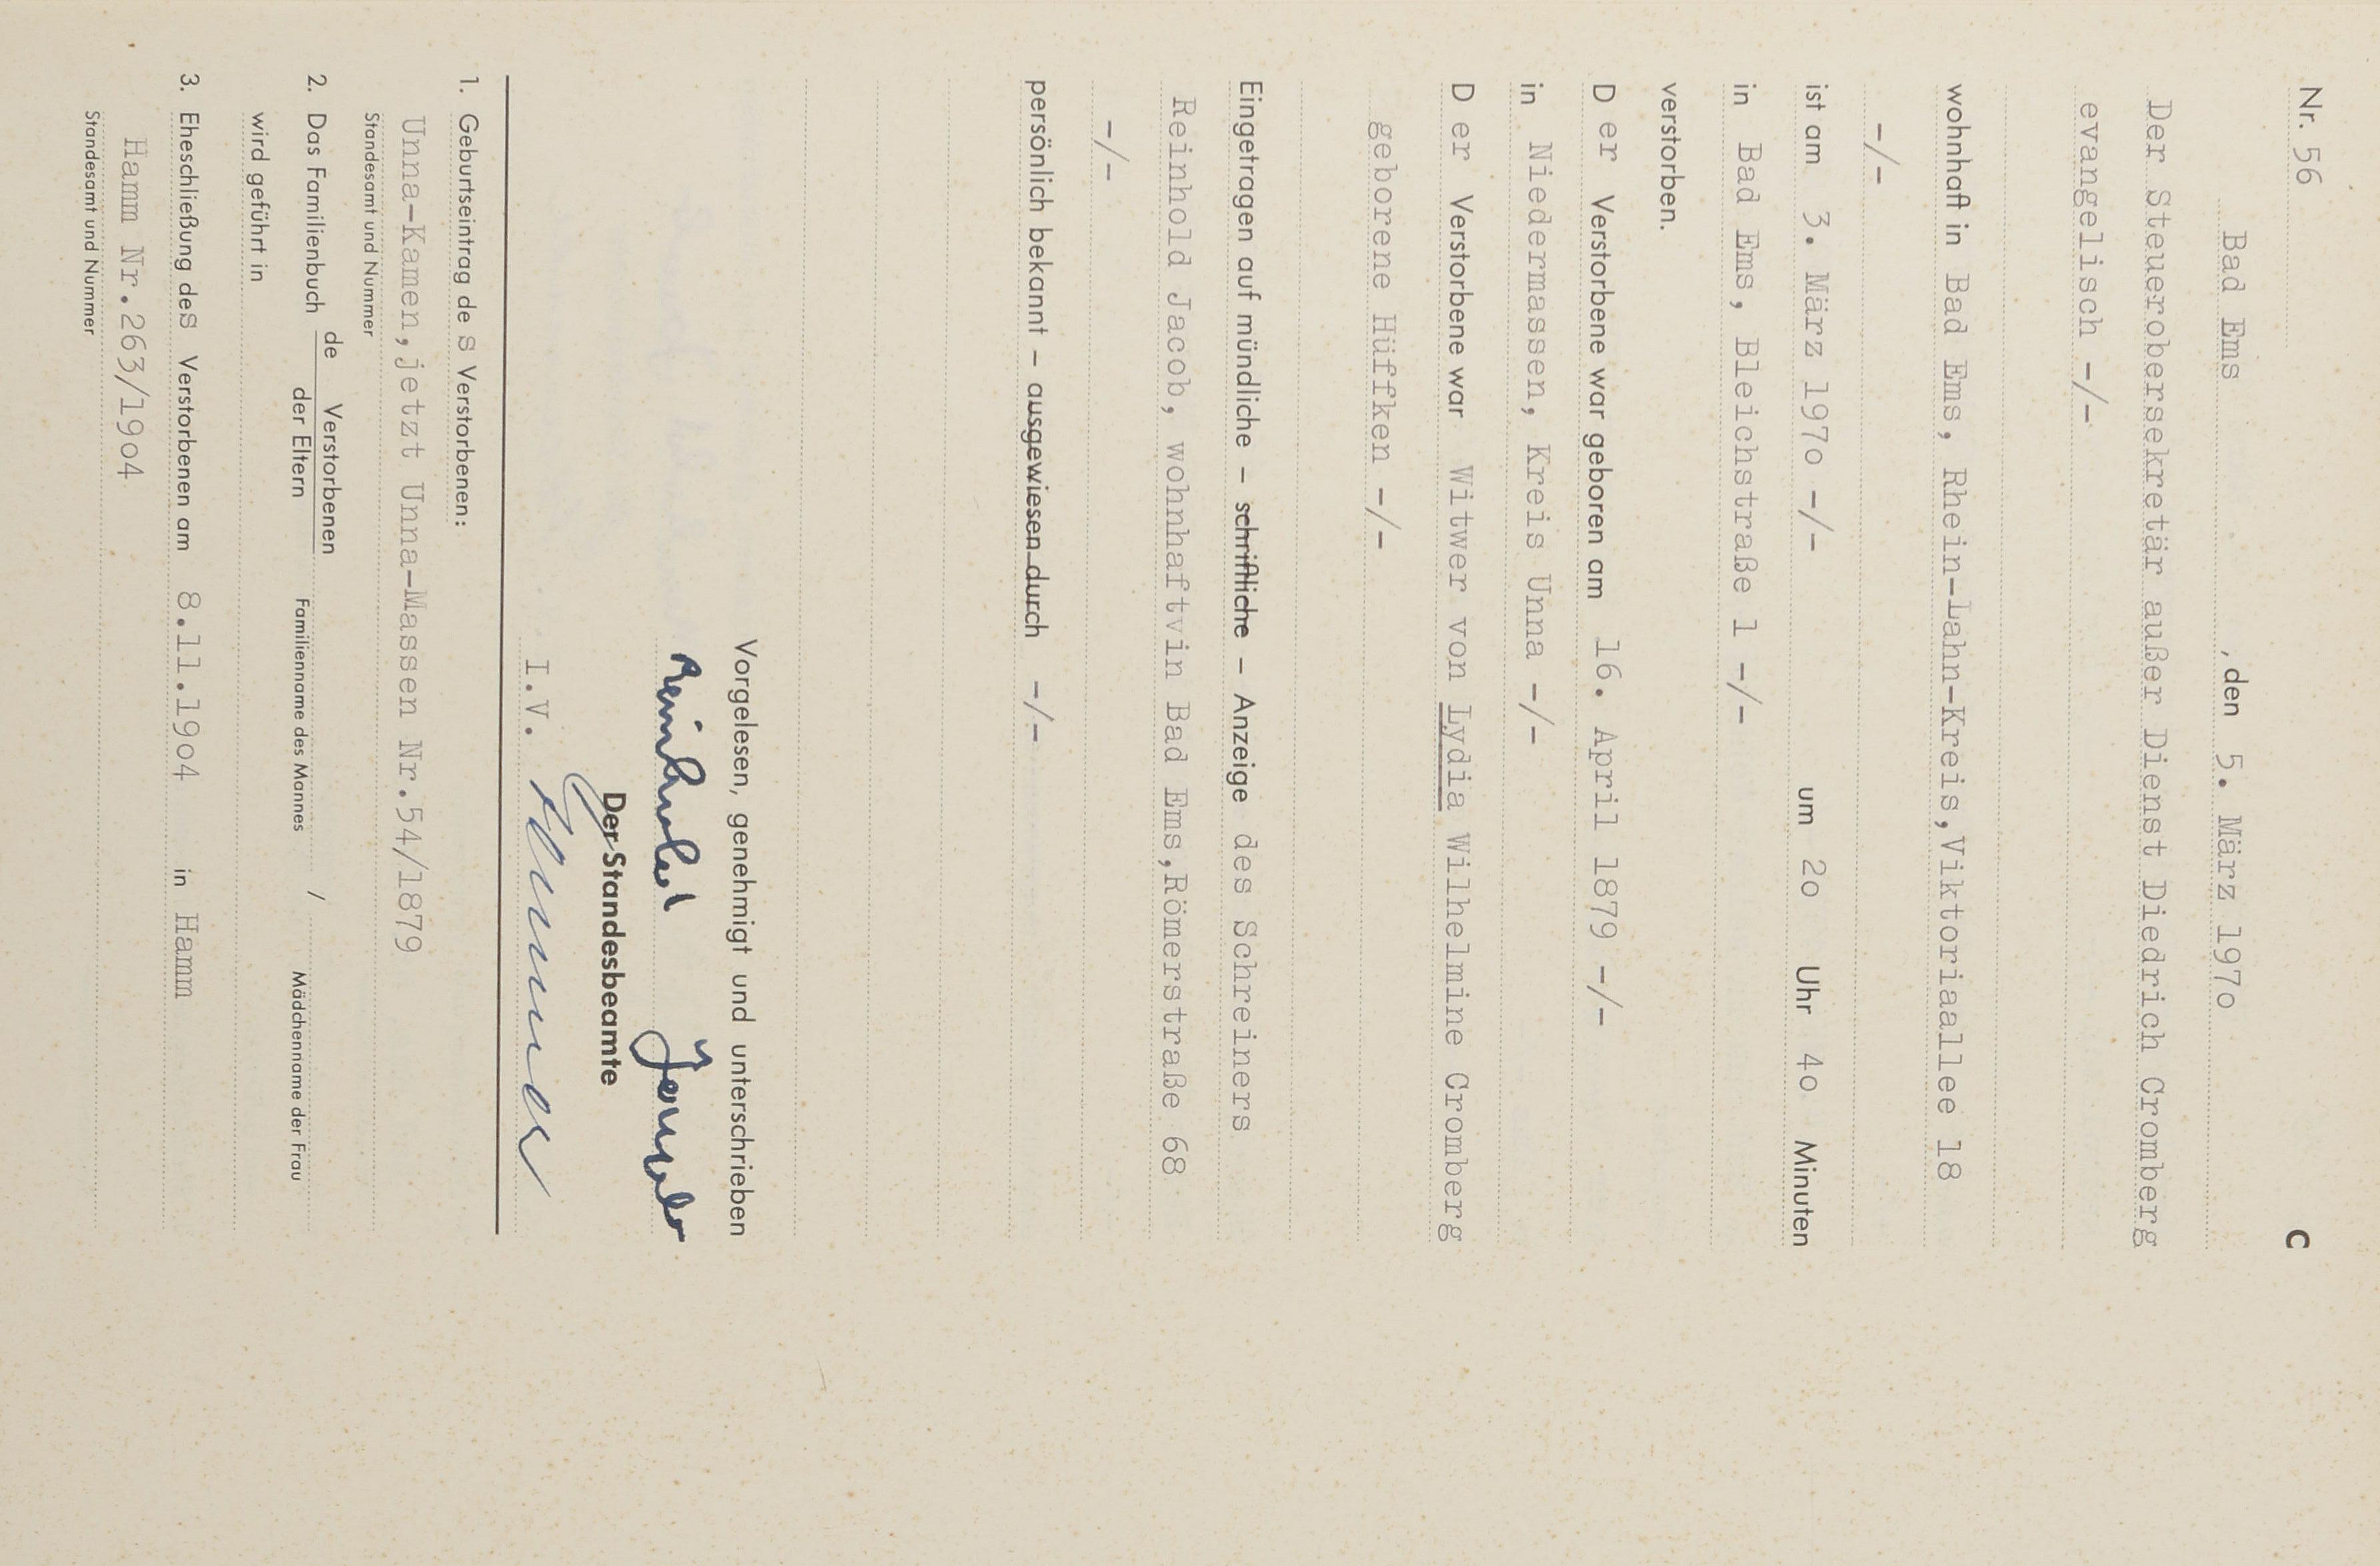 Nr. 56
C
Bad Ems , den 5. März 197o
Der Steuerobersekretär außer Dienst Diedrich Cromberg
evangelisch -/-
wohnhaft in Bad Ems, Rhein-Lahn-Kreis,Viktoriaallee 18
-/-
ist am 3. März 197o -/- um 2o Uhr 4o Minuten
in Bad Ems, Bleichstraße 1 -/-
verstorben.
D er Verstorbene war geboren am 16. April 1879 -/-
in Niedermassen, Kreis Unna -/-
D er Verstorbene war Witwer von Lydia Wilhelmine Cromberg
geborene Hüffken -/-
Eingetragen auf mündliche – schriftliche – Anzeige des Schreiners
Reinhold Jacob, wohnhaftvin Bad Ems,Römerstraße 68
-/-
persönlich bekannt – ausgewiesen durch -/-
Vorgelesen, genehmigt und unterschrieben
Reinhold Jacob
Der Standesbeamte
I.V.
1. Geburtseintrag de s Verstorbenen:
Unna-Kamen,jetzt Unna-Massen Nr.54/1879
Standesamt und Nummer
2. Das Familienbuch de Verstorbenen
der Eltern Familienname des Mannes / Mädchenname der Frau
wird geführt in
3. Eheschließung des Verstorbenen am 8.11.19o4 in Hamm
Hamm Nr.263/19o4
Standesamt und Nummer